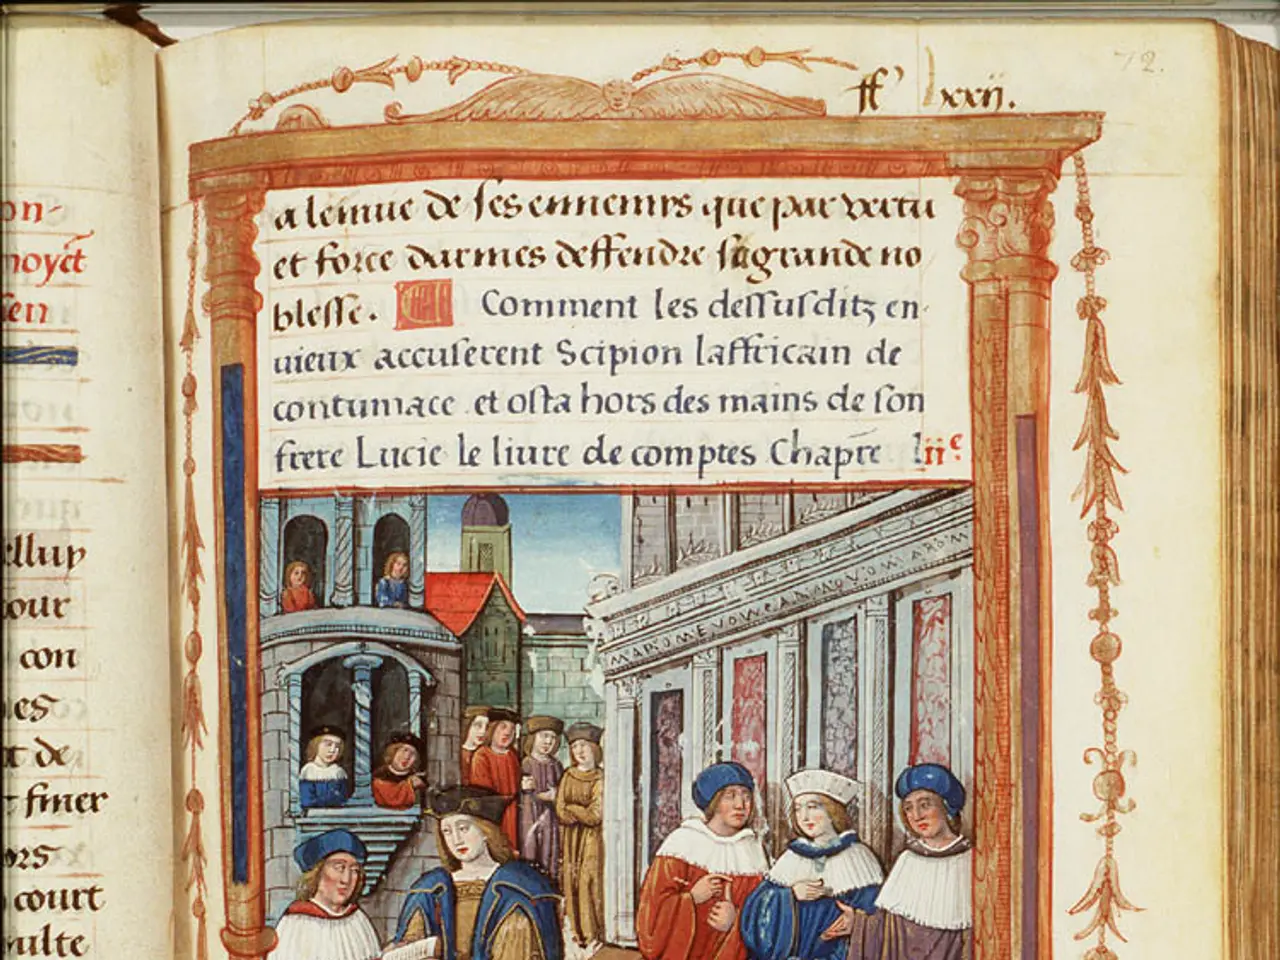 on-
noyct
sen
ellup
our
con
les
t de
finer
ors
court
sulte
ff' lxxij.
72.
a lemue de ses ennemys que par vertu
et force darmes deffendre sa grande no
blesse. C Comment les dessusditz en-
uieux accuserent Scipion laffricain de
contumace. et osta hors des mains de son
frere Lucie le liure de comptes Chapre liie.